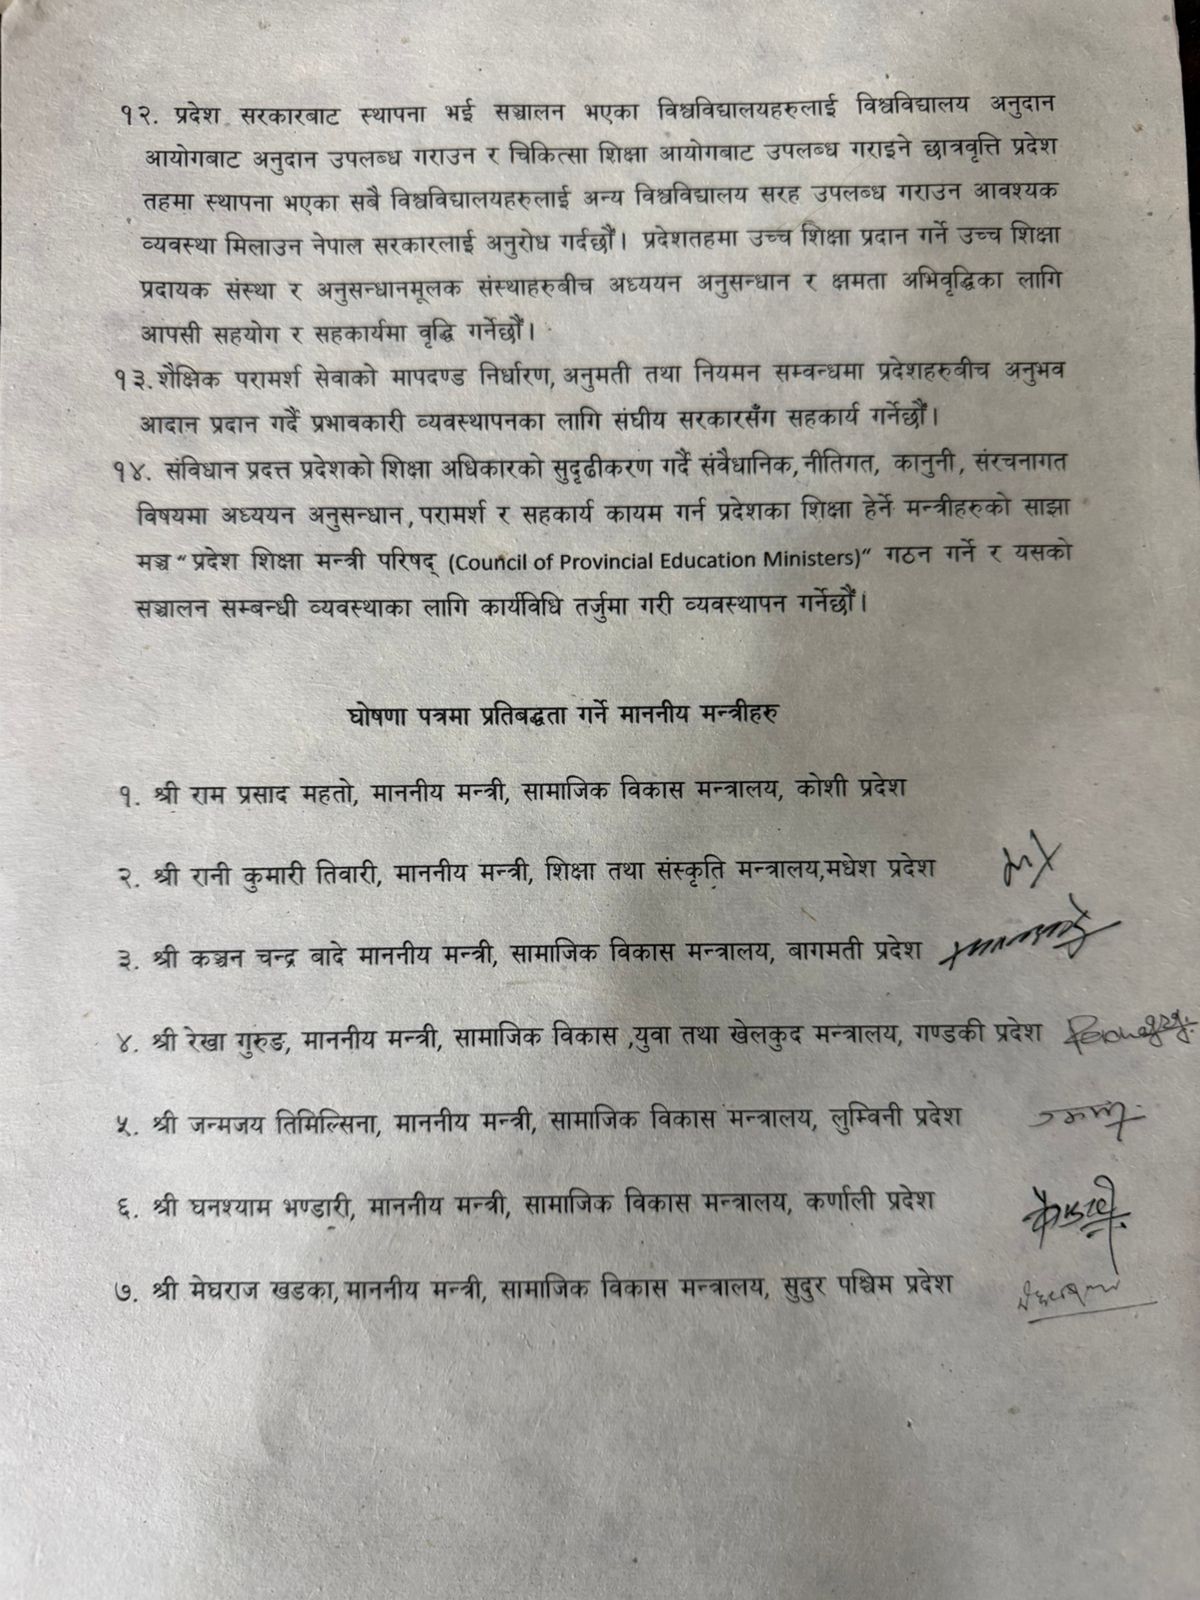 १२. प्रदेश सरकारबाट स्थापना भई सञ्चालन भएका विश्वविद्यालयहरुलाई विश्वविद्यालय अनुदान
आयोगबाट अनुदान उपलब्ध गराउन र चिकित्सा शिक्षा आयोगबाट उपलब्ध गराइने छात्रवृत्ति प्रदेश
तहमा स्थापना भएका सबै विश्वविद्यालयहरुलाई अन्य विश्वविद्यालय सरह उपलब्ध गराउन आवश्यक
व्यवस्था मिलाउन नेपाल सरकारलाई अनुरोध गर्दछौं। प्रदेशतहमा उच्च शिक्षा प्रदान गर्ने उच्च शिक्षा
प्रदायक संस्था र अनुसन्धानमूलक संस्थाहरुबीच अध्ययन अनुसन्धान र क्षमता अभिवृद्धिका लागि
आपसी सहयोग र सहकार्यमा वृद्धि गर्नेछौं।
१३. शैक्षिक परामर्श सेवाको मापदण्ड निर्धारण, अनुमती तथा नियमन सम्वन्धमा प्रदेशहरुबीच अनुभव
आदान प्रदान गर्दै प्रभावकारी व्यवस्थापनका लागि संघीय सरकारसँग सहकार्य गर्नेछौं।
१४. संविधान प्रदत्त प्रदेशको शिक्षा अधिकारको सुदृढीकरण गर्दै संवैधानिक, नीतिगत, कानुनी, संरचनागत
विषयमा अध्ययन अनुसन्धान, परामर्श र सहकार्य कायम गर्न प्रदेशका शिक्षा हेर्ने मन्त्रीहरुको साझा
मञ्च “प्रदेश शिक्षा मन्त्री परिषद् (Council of Provincial Education Ministers)“ गठन गर्ने र यसको
सञ्चालन सम्बन्धी व्यवस्थाका लागि कार्यविधि तर्जुमा गरी व्यवस्थापन गर्नेछौं।
घोषणा पत्रमा प्रतिबद्धता गर्ने माननीय मन्त्रीहरु
१. श्री राम प्रसाद महतो, माननीय मन्त्री, सामाजिक विकास मन्त्रालय, कोशी प्रदेश
२. श्री रानी कुमारी तिवारी, माननीय मन्त्री, शिक्षा तथा संस्कृति मन्त्रालय,मधेश प्रदेश
३. श्री कञ्चन चन्द्र बादे माननीय मन्त्री, सामाजिक विकास मन्त्रालय, बागमती प्रदेश
४. श्री रेखा गुरुङ, माननीय मन्त्री, सामाजिक विकास ,युवा तथा खेलकुद मन्त्रालय, गण्डकी प्रदेश
५. श्री जन्मजय तिमिल्सिना, माननीय मन्त्री, सामाजिक विकास मन्त्रालय, लुम्विनी प्रदेश
६. श्री घनश्याम भण्डारी, माननीय मन्त्री, सामाजिक विकास मन्त्रालय, कर्णाली प्रदेश
७. श्री मेघराज खडका, माननीय मन्त्री, सामाजिक विकास मन्त्रालय, सुदुर पश्चिम प्रदेश